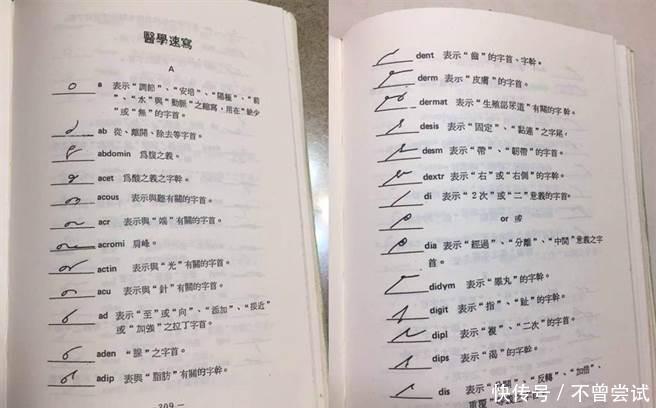 醫學速寫
A
a 表示“調節”、“安培”、“陽極”、“前
”、“水”與“動脈”之縮寫,用在“缺少
”或“無”的字首。
ab 從、離開、除去等字首。
abdomin 爲腹之義。
acet 爲酸之義之字幹。
acous 表示與聽有關的字首。
acr 表示與“端”有關的字首。
acromi 肩峰。
actin 表示與“光”有關的字首。
acu 表示與“針”有關的字首。
ad 表示“至”或“向”、“添加”、“接近”
或“加強”之拉丁字首。
aden “腺”之字首。
adip 表與“脂肪”有關的字幹。
209 —
dent 表示“齒”的字首、字幹。
derm 表示“皮膚”的字首。
dermat 表示“生殖泌尿道”有關的字幹。
desis 表示“固定”、“黏連”之字尾。
desm 表示“帶”、“韌帶”的字首。
dextr 表示“右”或“右側”的字幹。
di 表示“2次”或“二”意義的字首。
or 或
dia 表示“經過”、“分離”、“中間”意義之字
首。
didym 表示“睪丸”的字幹。
digit 表示“指”、“趾”的字幹。
dipl 表示“複”、“二次”的字首。
dips 表示“渴”的字幹。
dis 表示“分離”、“反轉”、“加倍”、
重覆
快传号 / 不曾尝试